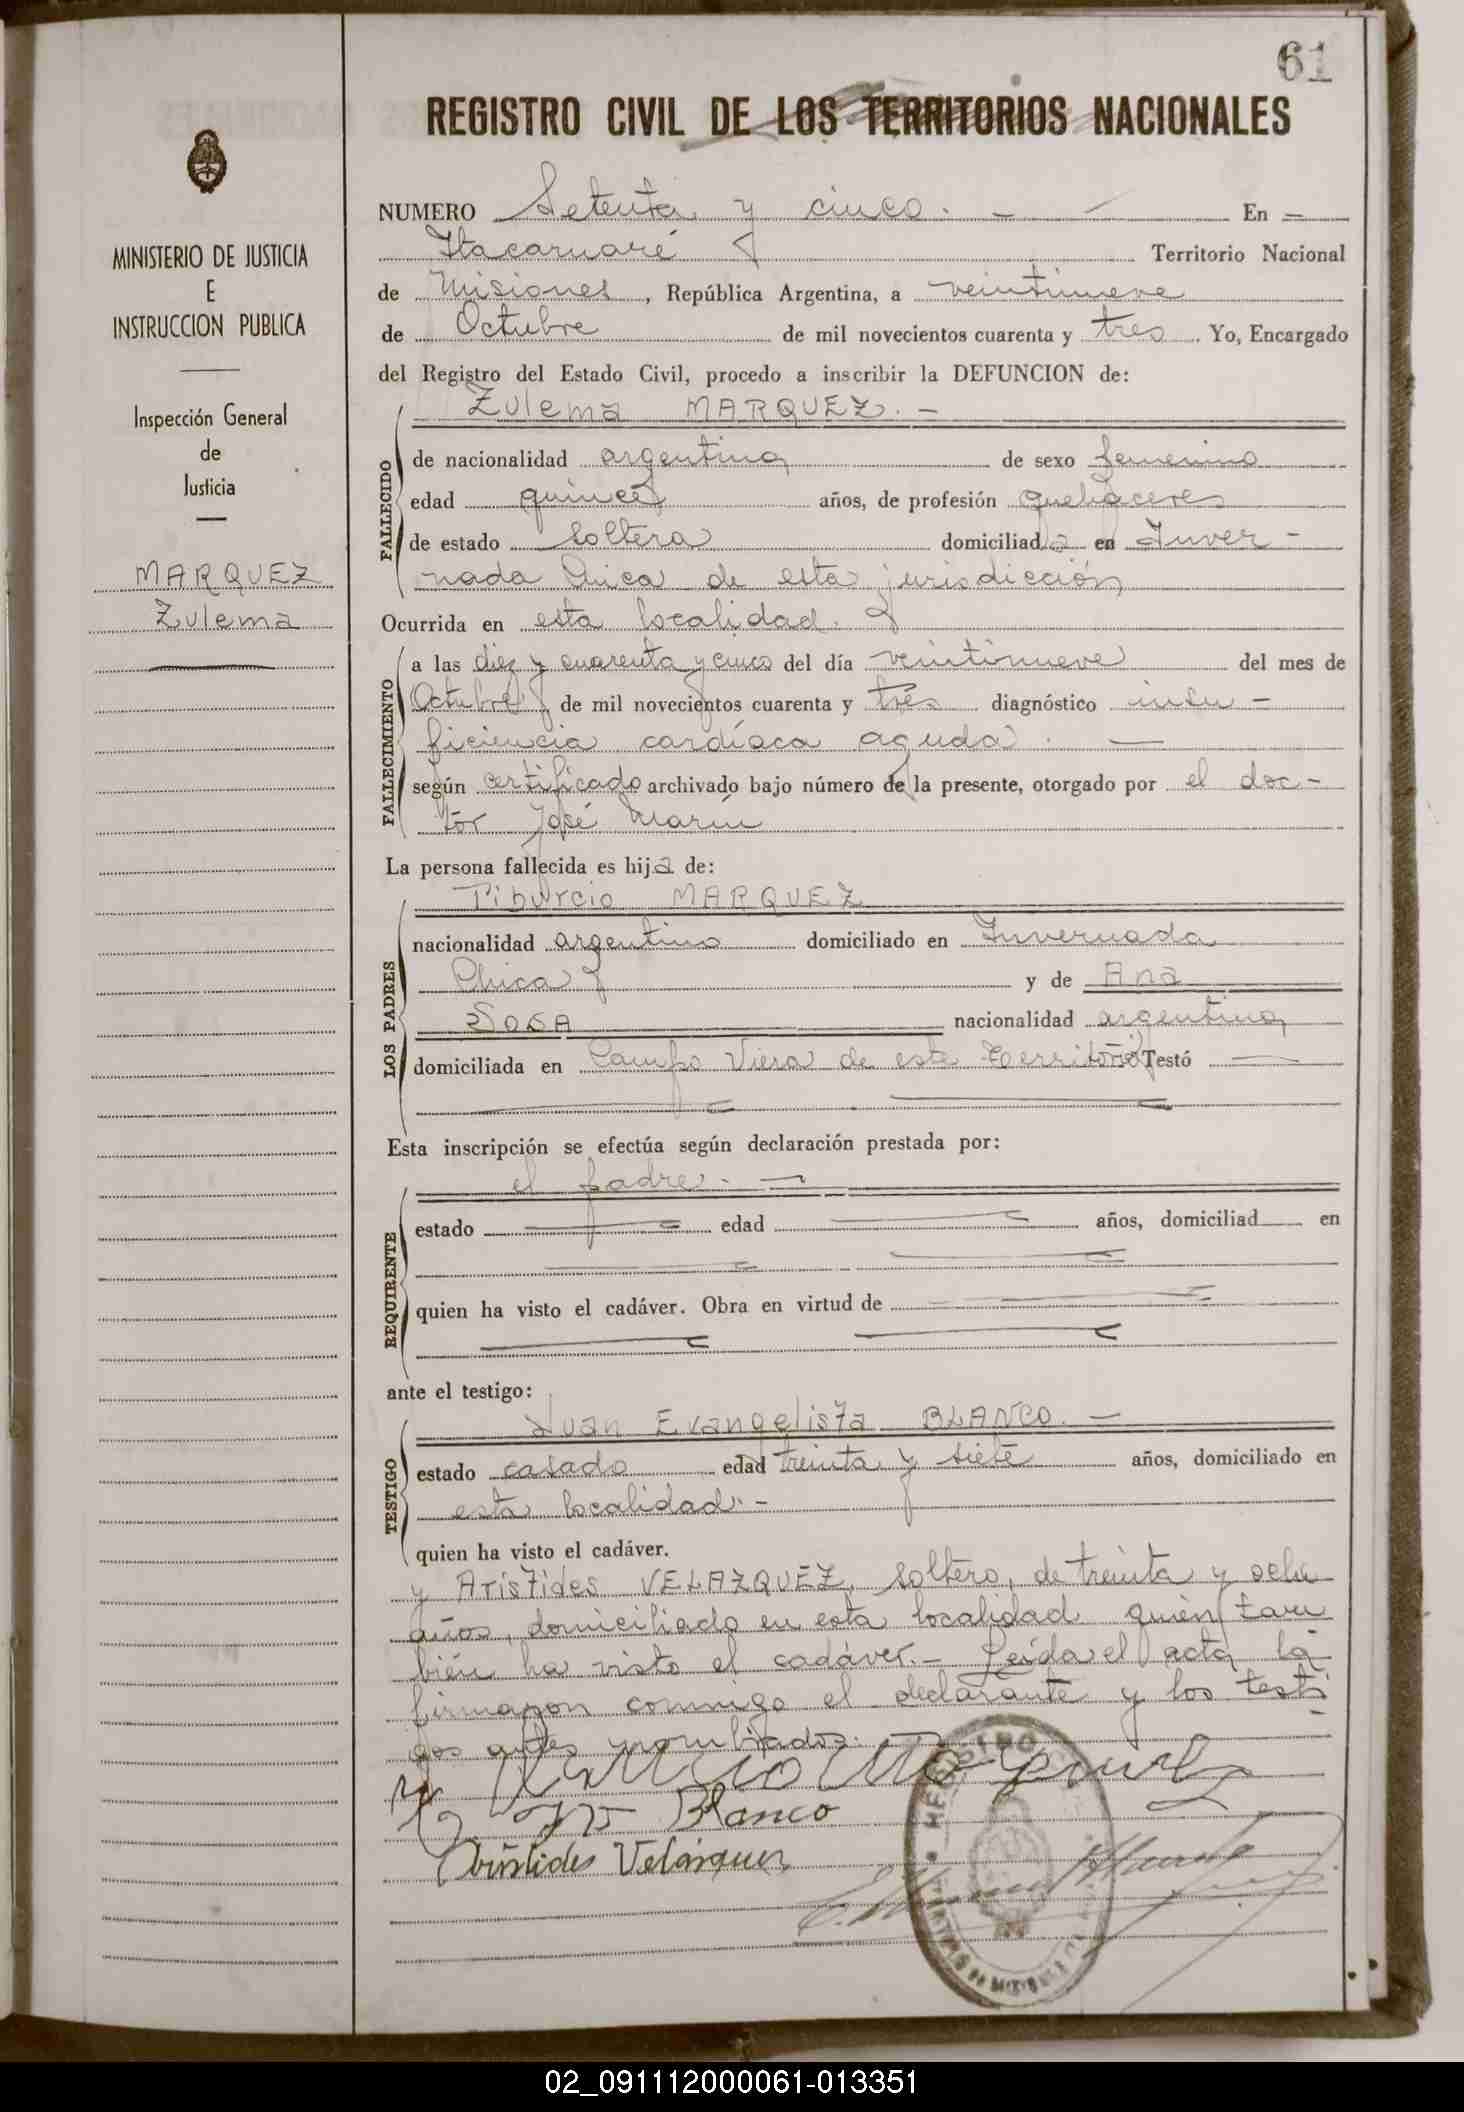 61
REGISTRO CIVIL DE LOS TERRITORIOS NACIONALES
MINISTERIO DE JUSTICIA
E
INSTRUCCION PUBLICA
Inspección General
de
Justicia
MARQUEZ
Zulema
NUMERO Setenta y cinco. - - En -
Itacaruaré Territorio Nacional
de Misiones, República Argentina, a veintinueve
de Octubre de mil novecientos cuarenta y tres. Yo, Encargado
del Registro del Estado Civil, procedo a inscribir la DEFUNCION de:
Zulema MARQUEZ. -
FALLECIDO
de nacionalidad argentina de sexo femenino
edad quince años, de profesión quehaceres
de estado soltera domiciliada en Inver -
nada Chica de esta jurisdicción
Ocurrida en esta localidad.
FALLECIMIENTO
a las diez y cuarenta y cinco del día veintinueve del mes de
Octubre de mil novecientos cuarenta y tres diagnóstico insu -
ficiencia cardíaca aguda. -
según certificado archivado bajo número de la presente, otorgado por el doc -
tor José Marín
La persona fallecida es hija de:
LOS PADRES
Tiburcio MARQUEZ
nacionalidad argentino domiciliado en Invernada
Chica y de Ana
SOSA nacionalidad argentina
domiciliada en Campo Viera de este Territorio Testó
Esta inscripción se efectúa según declaración prestada por:
REQUIRENTE
el padre. -
estado edad años, domiciliad en
quien ha visto el cadáver. Obra en virtud de
ante el testigo:
TESTIGO
Juan Evangelista BLANCO. -
estado casado edad treinta y siete años, domiciliado en
esta localidad. -
quien ha visto el cadáver.
y Arístides VELAZQUEZ, soltero, de treinta y ocho
años, domiciliado en esta localidad quien tam
bién ha visto el cadáver. - Leída el acta la
firmaron conmigo el declarante y los testi
gos antes nombrados.
Blanco
Arístides Velázquez
REGISTRO
02_091112000061-013351